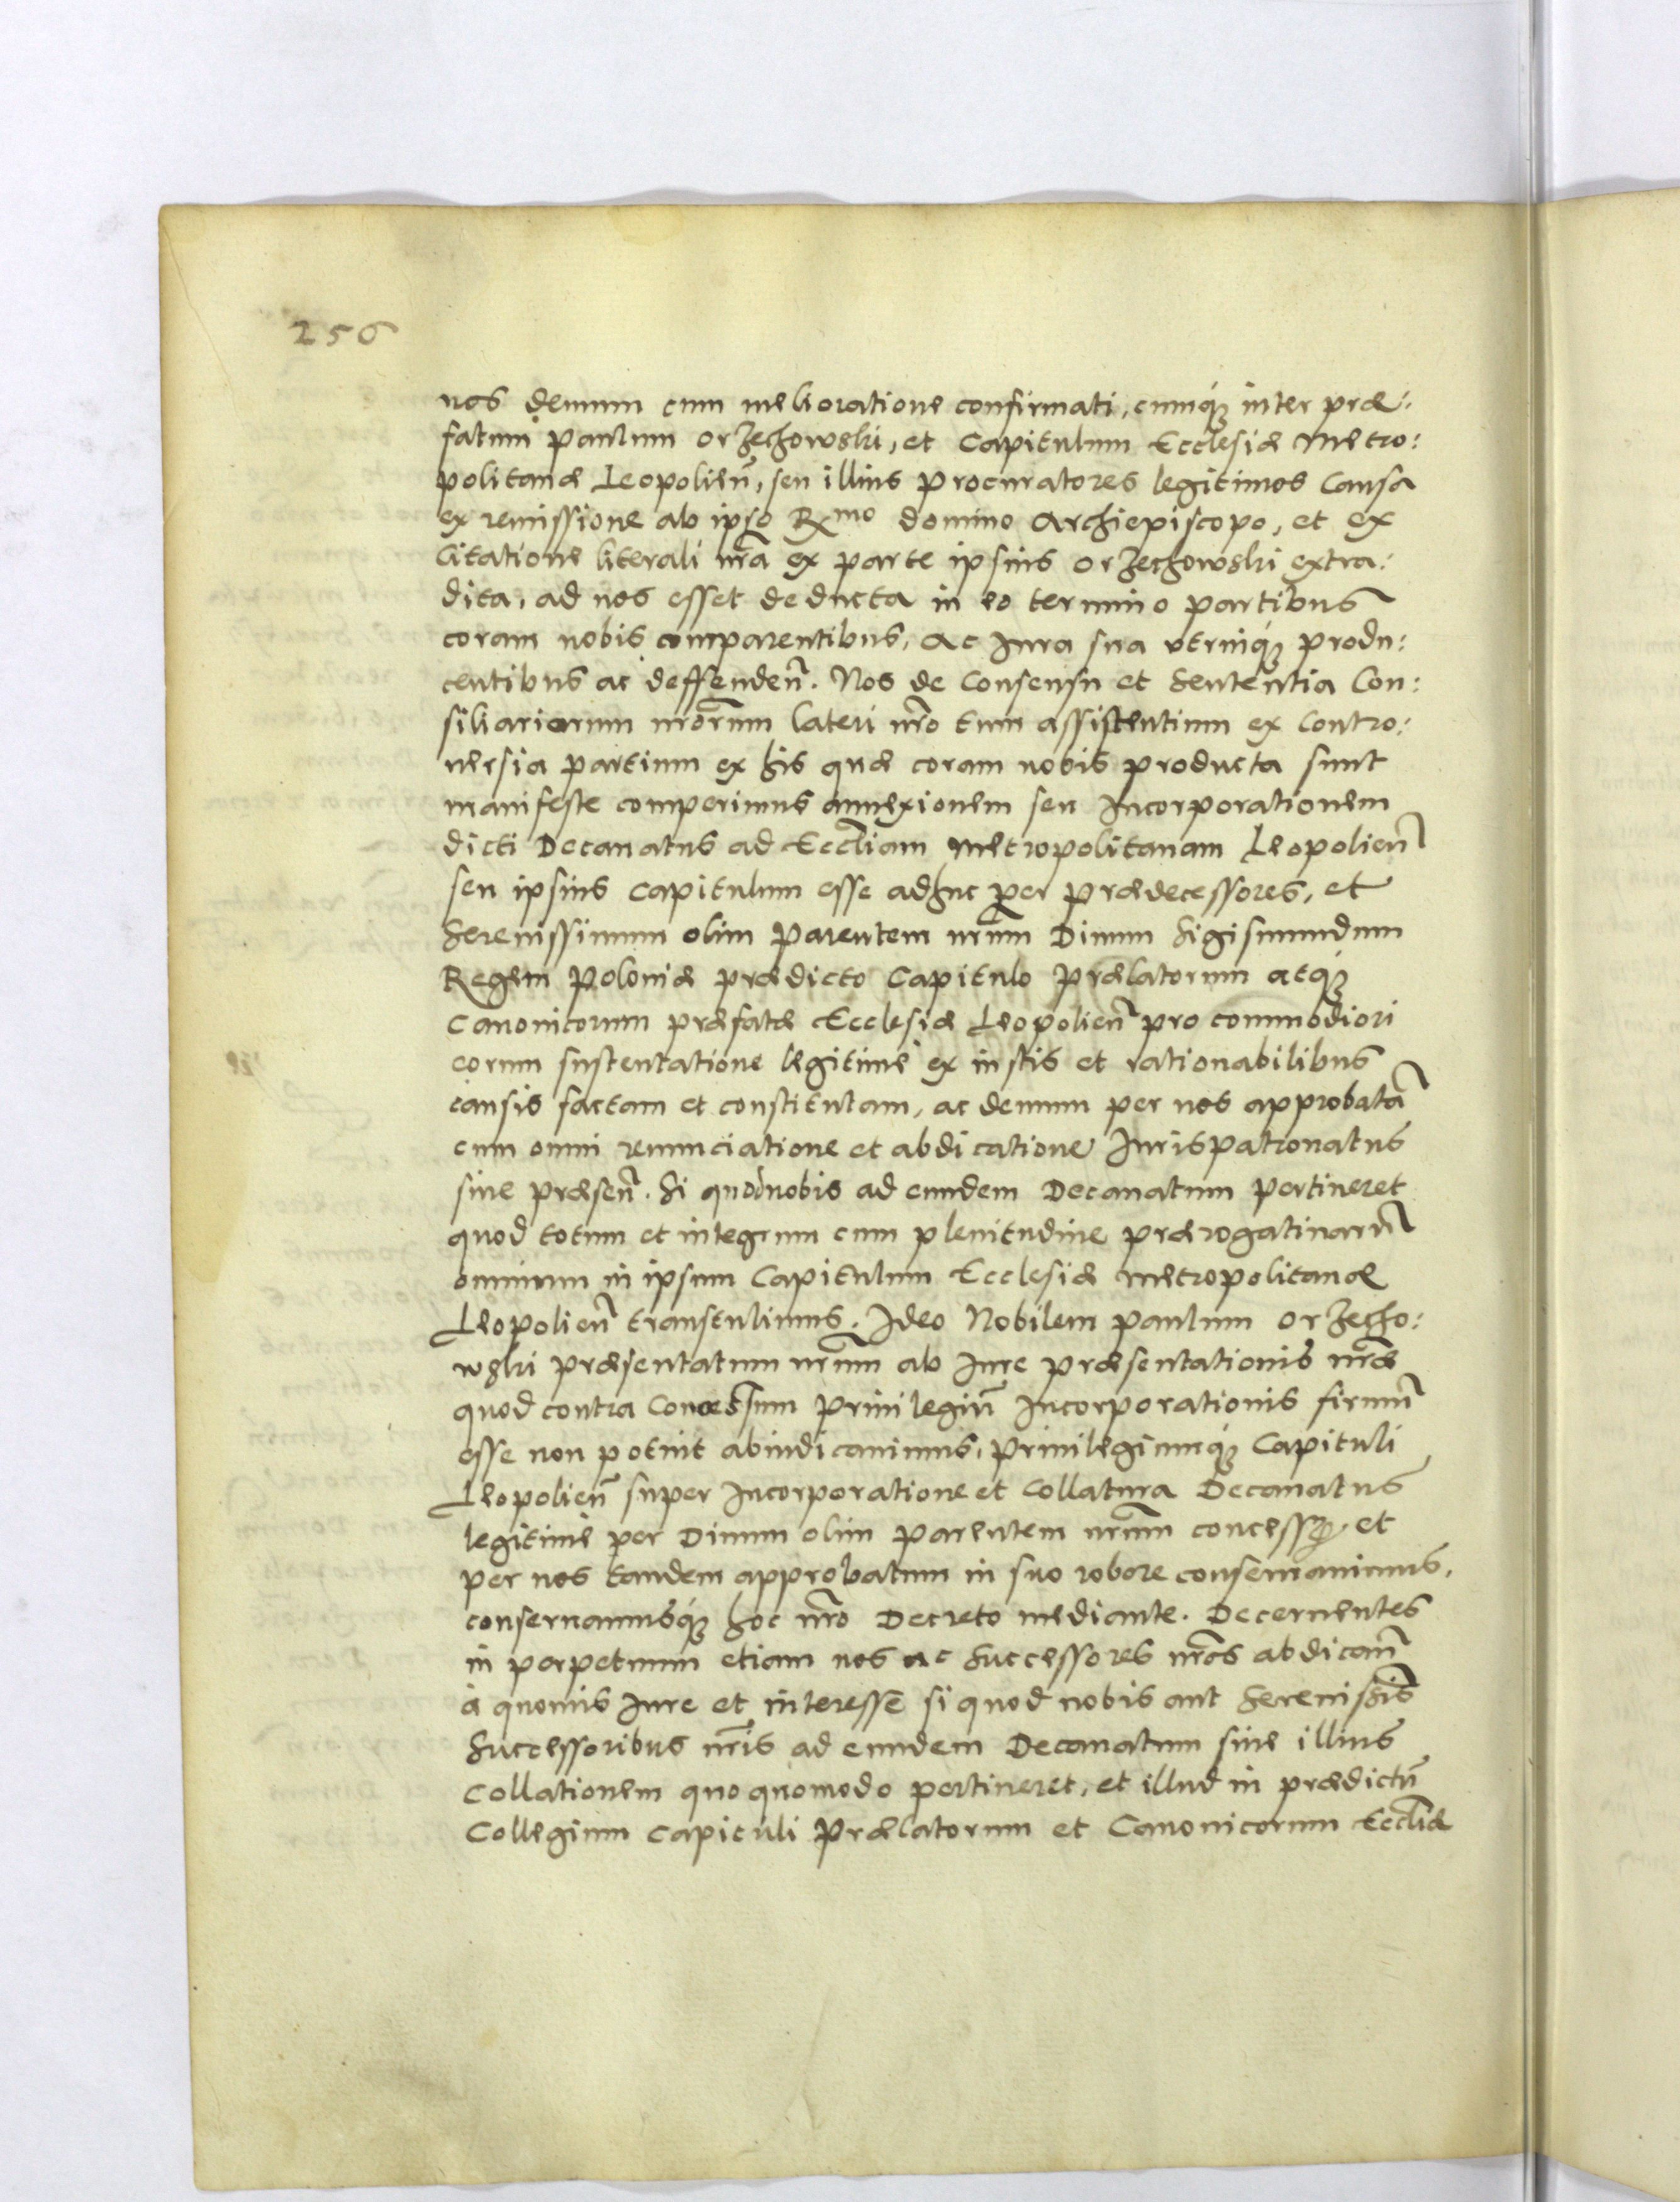 256
nos demum cum melioratione confirmati, cumq́ꝫ inter præ:
fatum Paulum Orzechowski, et Capitulum Ecclesiæ Metro:
politanæ Leopolień, seu illius Procuratores legitimos Causa
ex remissione ab ipso Rmo domino Archiepiscopo, et ex
Citatione literali nr̃a ex parte ipsius Orzechowski extra:
dita, ad nos esset deducta in eo termino partibus
coram nobis comparentibus, Ac Iura sua utrinq́ꝫ produ:
centibus ac deffendeñ. Nos de Consensu et Sententia Con:
siliariorum nr̃orum lateri nr̃o tum assistentium ex Contro:
uersia partium ex his quæ coram nobis producta sunt
manifeste comperimus annexionem seu Incorporationem
dicti Decanatus ad Eccl̃iam Metropolitanam Leopolieñ
seu ipsius Capitulum esse adhuc per Prædecessores, et
Serenissimum olim Parentem nr̃um Diuum Sigismundum
Regem Poloniæ prædicto Capitulo Prælatorum atq́ꝫ
Canonicorum præfatæ Ecclesiæ Leopolieñ pro commodiori
eorum sustentatione legitimè ex iustis et rationabilibus
causis factam et constitutam, ac demum per nos approbatã
cum omni renunciatione et abdicatione Iurispatronatus
siue præseñ. Si quod nobis ad eundem Decanatum pertineret
quod totum et integrum cum plenitudine prærogatiuarũ
omnium in ipsum Capitulum Ecclesiæ Metropolitanæ
Leopolieñ transtulimus. Ideo Nobilem Paulum Orzecho:
wski præsentatum nr̃um ab Iure præsentationis nr̃æ
quod contra Concessum Priuilegiũ Incorporationis firmũ
esse non potuit abiudicauimus, Priuilegiumq́ꝫ Capituli
Leopolieñ super Incorporatione et Collatura Decanatus
legitimè per Diuum olim Parentem nr̃um concessũ et
per nos tandem approbatum in suo robore conseruauimus,
conseruamusq́ꝫ hoc nr̃o Decreto mediante. Decernentes
in perpetuum etiam nos ac Successores nr̃os abdicañ
à quouis Iure et interesse si quod nobis aut Serenissĩs
Successoribus nr̃is ad eundem Decanatum siue illius
Collationem quoquomodo pertineret, et illud in prædictũ
Collegium Capituli Prælatorum et Canonicorum Eccl̃iæ